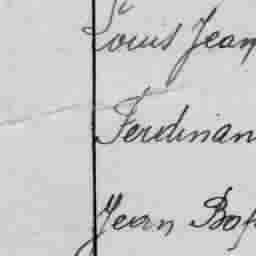 Louis Jean
Ferdinan
Jean Bap